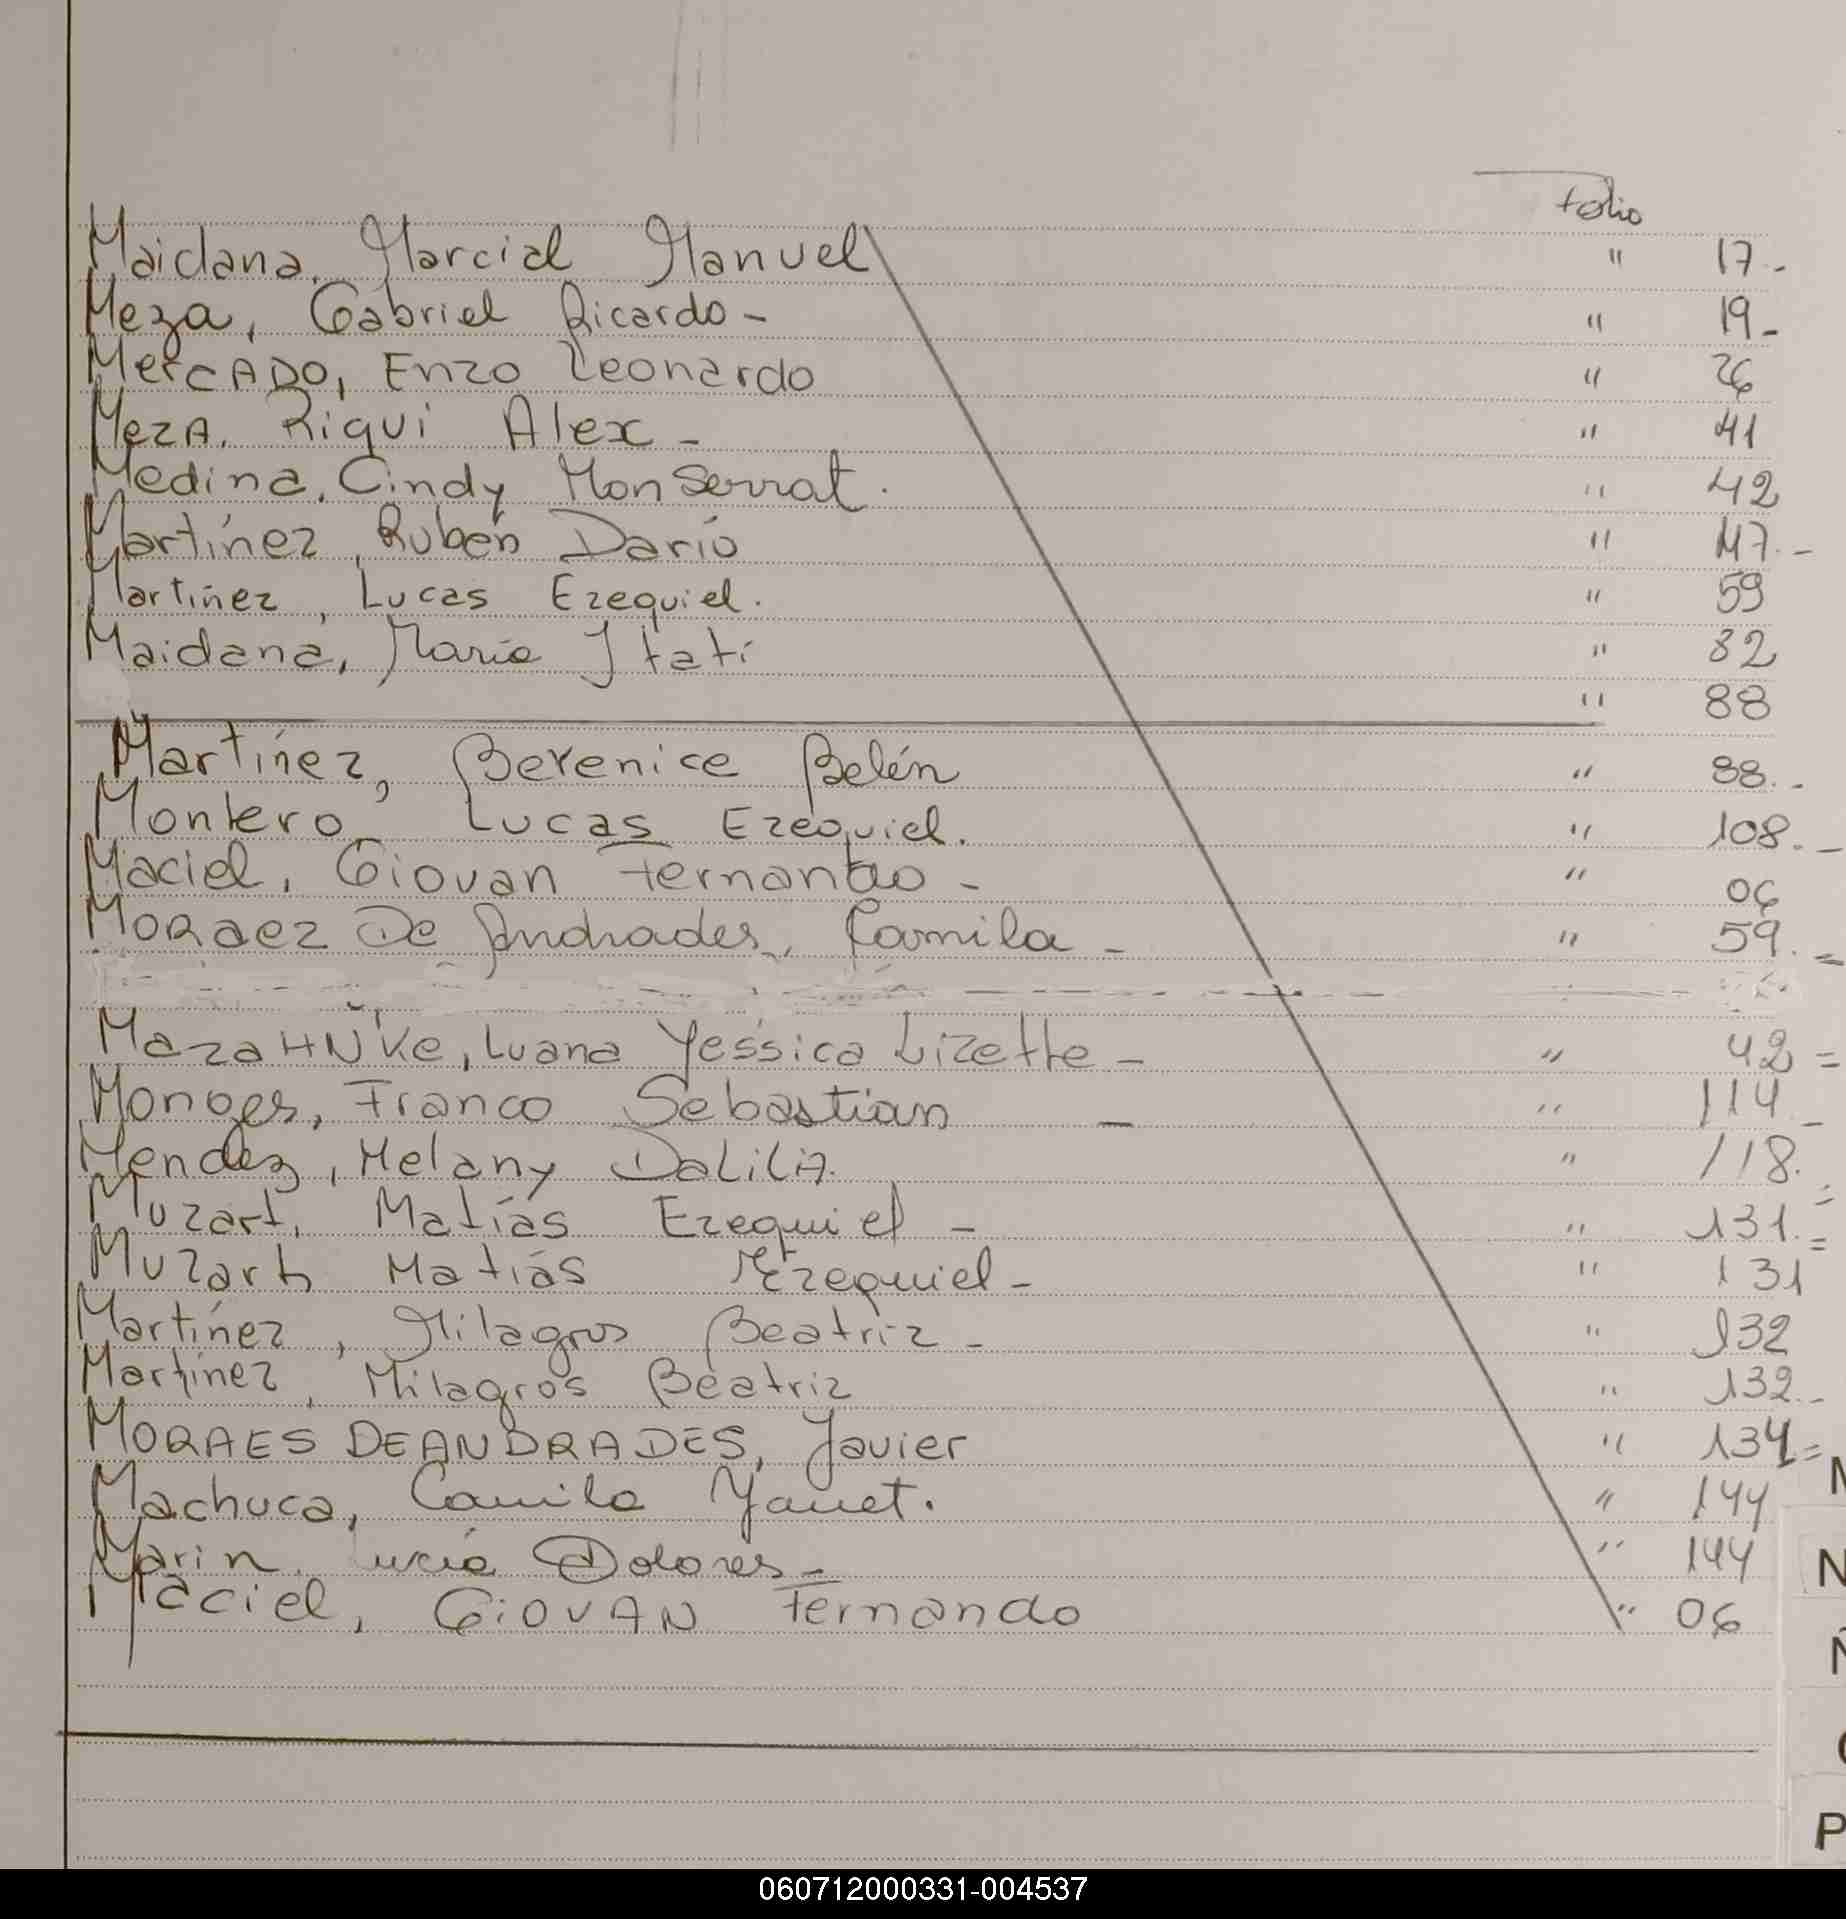 Folio
Maidana, Marcial Manuel " 17.-
Meza, Gabriel Ricardo - " 19.-
MercADO, Enzo Leonardo " 26
MezA, Riqui Alex - " 41
Medina, Cindy Monserrat. " 42
Martínez, Rubén Darío " 47.-
Martínez, Lucas Ezequiel. " 59
Maidana, María Itatí " 82
" 88
Martínez, Berenice Belén " 88.-
Montero, Lucas Ezequiel. " 108.-
Maciel, Giovan Fernando - " 06
MORaez De Andrades, Camila - " 59.=
MazaHNKe, Luana Yessica Lizette - " 42=
Monges, Franco Sebastian - " 114-
Mendez, Melany DaliliA. " 118.=
Muzart, Matías Ezequiel - " 131.=
Muzart, Matías Ezequiel - " 131
Martínez, Milagros Beatriz - " 132
Martínez, Milagros Beatriz " 132.-
MORAES DEANDRADES, Javier " 134=
Machuca, Camila Yanet. " 144
Marin, Lucía Dolores - " 144
Maciel, GiOVAN Fernando " 06
N
Ñ
P
060712000331-004537